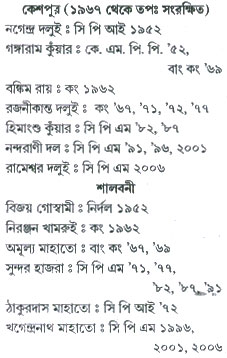 কেশপুর (১৯৬৭ থেকে তপঃ সংরক্ষিত)
নগেন্দ্র দলুই : সি পি আই ১৯৫২
গঙ্গারাম কুঁয়ার : কে. এম. পি. পি. '৫২,
বাং কং '৬৯
বঙ্কিম রায় : কং ১৯৬২
রজনীকান্ত দলুই : কং '৬৭, '৭১, '৭২, '৭৭
হিমাংশু কুঁয়ার : সি পি এম '৮২, '৮৭
নন্দরাণী দল : সি পি এম '৯১, '৯৬, ২০০১
রামেশ্বর দলুই : সি পি এম ২০০৬
শালবনী
বিজয় গোস্বামী : নির্দল ১৯৫২
নিরঞ্জন খামরুই : কং ১৯৬২
অমূল্য মাহাতো : বাং কং '৬৭, '৬৯
সুন্দর হাজরা : সি পি এম '৭১, '৭৭,
'৮২, '৮৭, '৯১
ঠাকুরদাস মাহাতো : সি পি আই '৭২
খগেন্দ্রনাথ মাহাতো : সি পি এম ১৯৯৬,
২০০১, ২০০৬